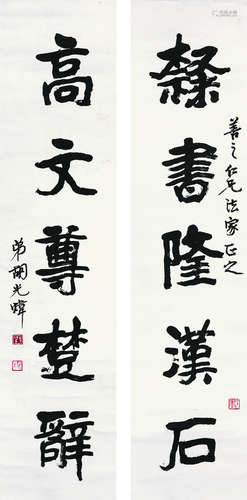 善之仁兄法家正之
隸書隆漢石
高文尊楚辭
弟胡光煒